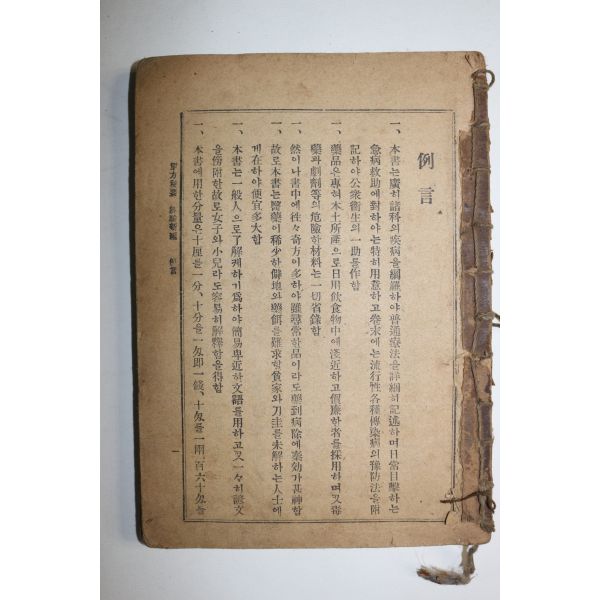 例言
一、本書는廣히諸科의疾病을網羅하야普通療法을詳細히記述하며日常目擊하는
急病救助에對하야는特히用意하고卷末에는流行性各種傳染病의豫防法을附
記하야公衆衛生의一助를作함
一、藥品은專혀本土所產으로日用飮食物中에淺近하고價廉한者를採用하며又毒
藥과劇劑等의危險한材料는一切省錄함
一、然이나書中에往々奇方이多하야雖尋常한品이라도藥到病除에奏効가甚神함
一、故로本書는醫藥이稀少한僻地와藥餌를難求할貧家와刀圭를未解하는人士에
게在하야便宜多大함
一、本書는一般人으로了解케하기爲하야簡易卑近한文語를用하고又一々히諺文
을傍附한故로女子와小兒라도容易히解釋함을得함
一、本書에用한分量은十厘를一分、十分을一匁即一錢、十匁를一兩、百六十匁를
例言
一